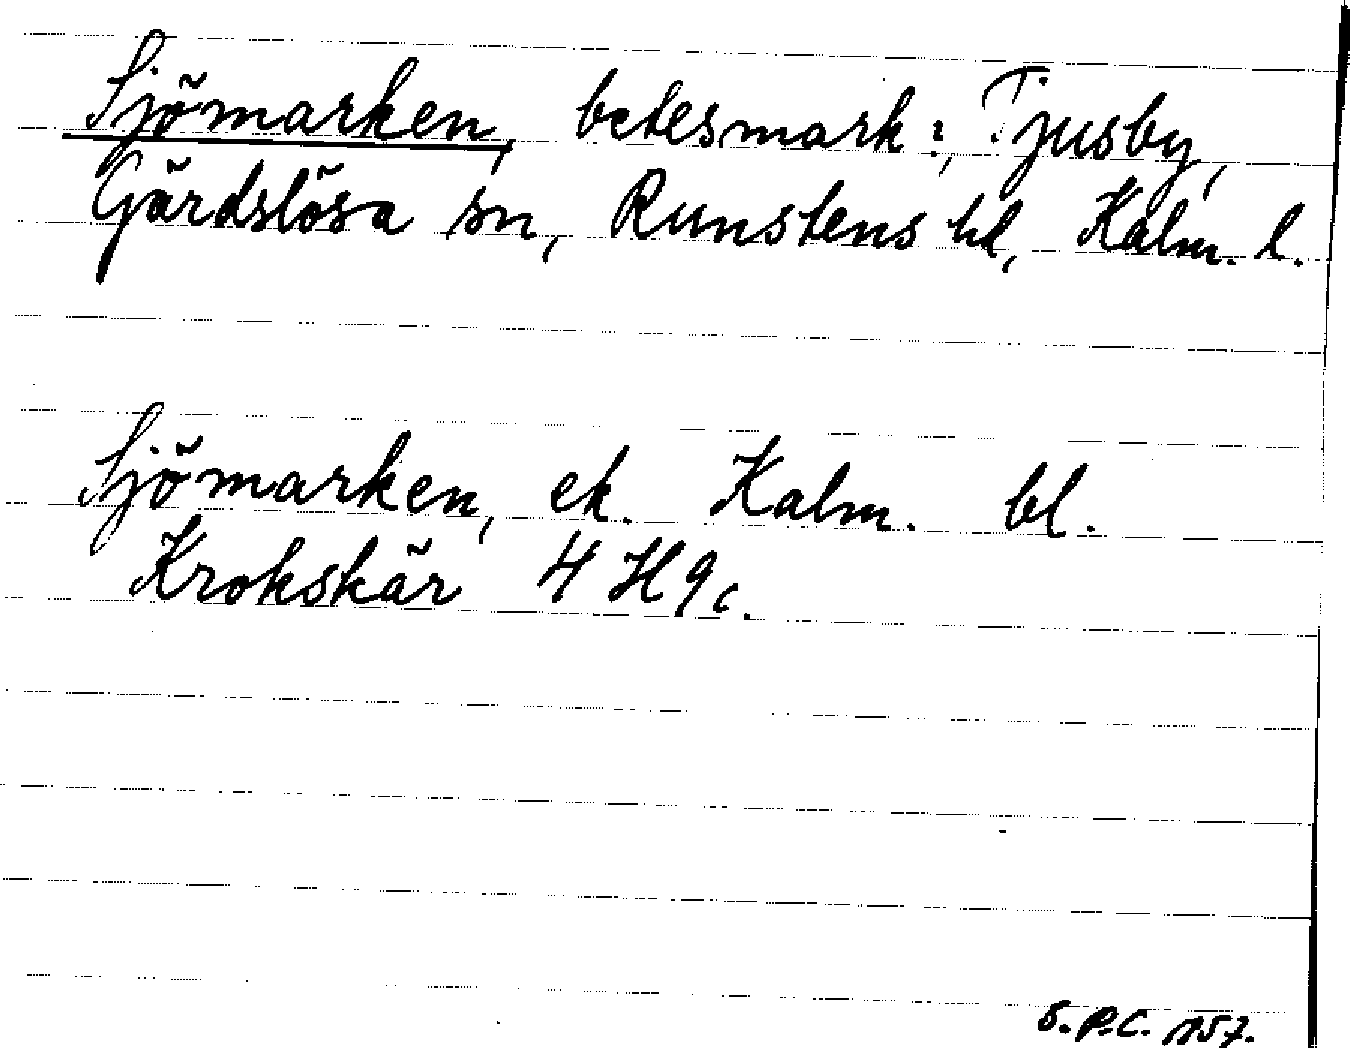 Sjömarken, betesmark:, Tjusby,
Gärdslösa sn, Runstens hd, Kalm. l.
Sjömarken, ek. Kalm. bl.
Krokskär 4 H 9 c.
S.P.C. 1957.